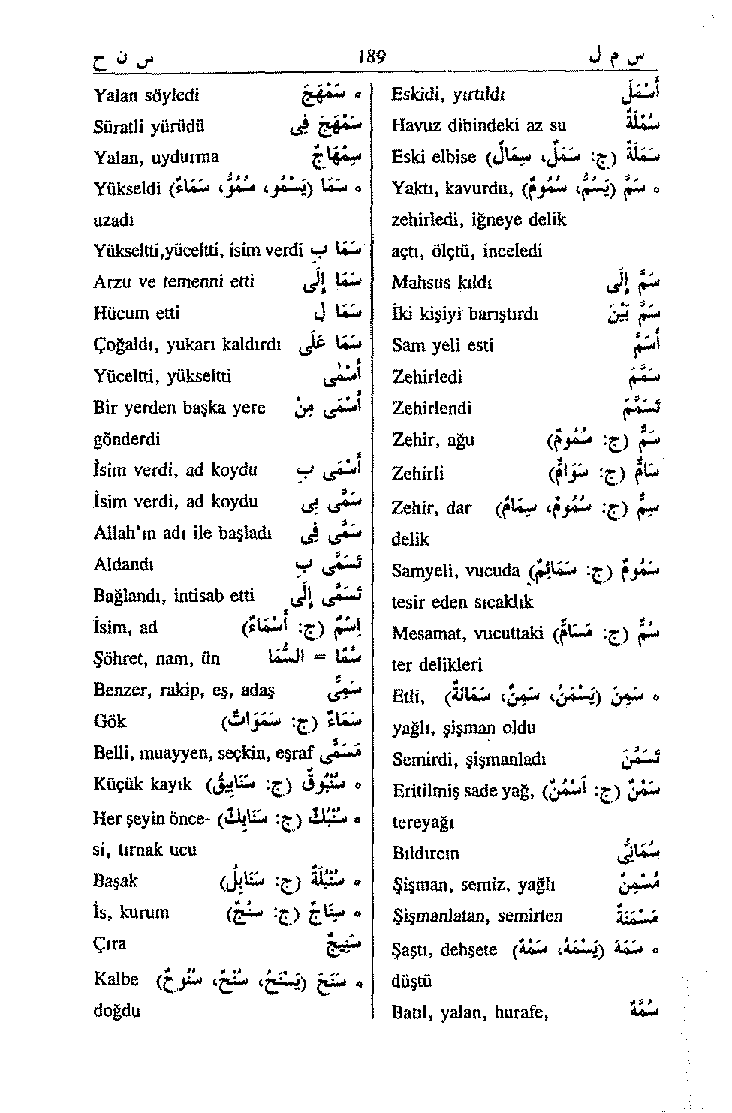 س ن ح 189 س م ل
Eskidi, yırtıldı أَسْمَلَ
Havuz dibindeki az su سُمْلَةٌ
Eski elbise سَمَلَةٌ (ج: سَمَلٌ، سِمَالٌ)
Yaktı, kavurdu, ٥ سَمَّ (يَسُمُّ، سُمُومٌ)
zehirledi, iğneye delik
açtı, ölçtü, inceledi
Mahsus kıldı سَمَّ إِلَى
İki kişiyi barıştırdı سَمَّ بَيْنَ
Sam yeli esti أَسَمَّ
Zehirledi سَمَّمَ
Zehirlendi تَسَمَّمَ
Zehir, ağu سَمٌّ (ج: سُمُومٌ)
Zehirli سَامٌّ (ج: سَوَامٌّ)
Zehir, dar سِمٌّ (ج: سُمُومٌ، سِمَامٌ)
delik
Samyeli, vucuda سَمُومٌ (ج: سَمَائِمُ)
tesir eden sıcaklık
Mesamat, vucuttaki سَمٌّ (ج: مَسَامٌّ)
ter delikleri
Etli, ٥ سَمِنَ (يَسْمَنُ، سِمَنٌ، سَمَانَةٌ)
yağlı, şişman oldu
Semirdi, şişmanladı تَسَمَّنَ
Eritilmiş sade yağ, سَمْنٌ (ج: أَسْمُنٌ)
tereyağı
Bıldırcın سُمَانَى
Şişman, semiz, yağlı مُسْمِنٌ
Şişmanlatan, semirten مُسْمِنَةٌ
Şaştı, dehşete ٥ سَمَهَ (يَسْمَهُ، سَمْهٌ)
düştü
Batıl, yalan, hurafe, سُمَّةٌ
Yalan söyledi ٥ سَمْهَجَ
Süratli yürüdü سَمْهَجَ فِى
Yalan, uydurma سِمْهَاجٌ
Yükseldi ٥ سَمَا (يَسْمُو، سُمُوٌّ، سَمَاءٌ)
uzadı
Yükseltti,yüceltti, isim verdi سَمَا بِ
Arzu ve temenni etti سَمَا إِلَى
Hücum etti سَمَا لِ
Çoğaldı, yukarı kaldırdı سَمَا عَلَى
Yüceltti, yükseltti أَسْمَى
Bir yerden başka yere أَسْمَى مِنْ
gönderdi
İsim verdi, ad koydu أَسْمَى بِ
İsim verdi, ad koydu سَمَّى بِى
Allah'ın adı ile başladı سَمَّى فِى
Aldandı تَسَمَّى بِ
Bağlandı, intisab etti تَسَمَّى إِلَى
İsim, ad إِسْمٌ (ج: أَسْمَاءٌ)
Şöhret, nam, ün سُمًا = السُّمَا
Benzer, rakip, eş, adaş سَمِىٌّ
Gök سَمَاءٌ (ج: سَمَوَاتٌ)
Belli, muayyen, seçkin, eşraf مُسَمًّى
Küçük kayık ٥ سُنْبُوقٌ (ج: سَنَابِيقُ)
Her şeyin önce- ٥ سُنْبُكٌ (ج: سَنَابِكُ)
si, tırnak ucu
Başak ٥ سُنْبُلَةٌ (ج: سَنَابِلُ)
İs, kurum ٥ سِنَاجٌ (ج: سُنُجٌ)
Çıra سَنِيجٌ
Kalbe ٥ سَنَحَ (يَسْنَحُ، سُنْحٌ، سُنُوحٌ)
doğdu